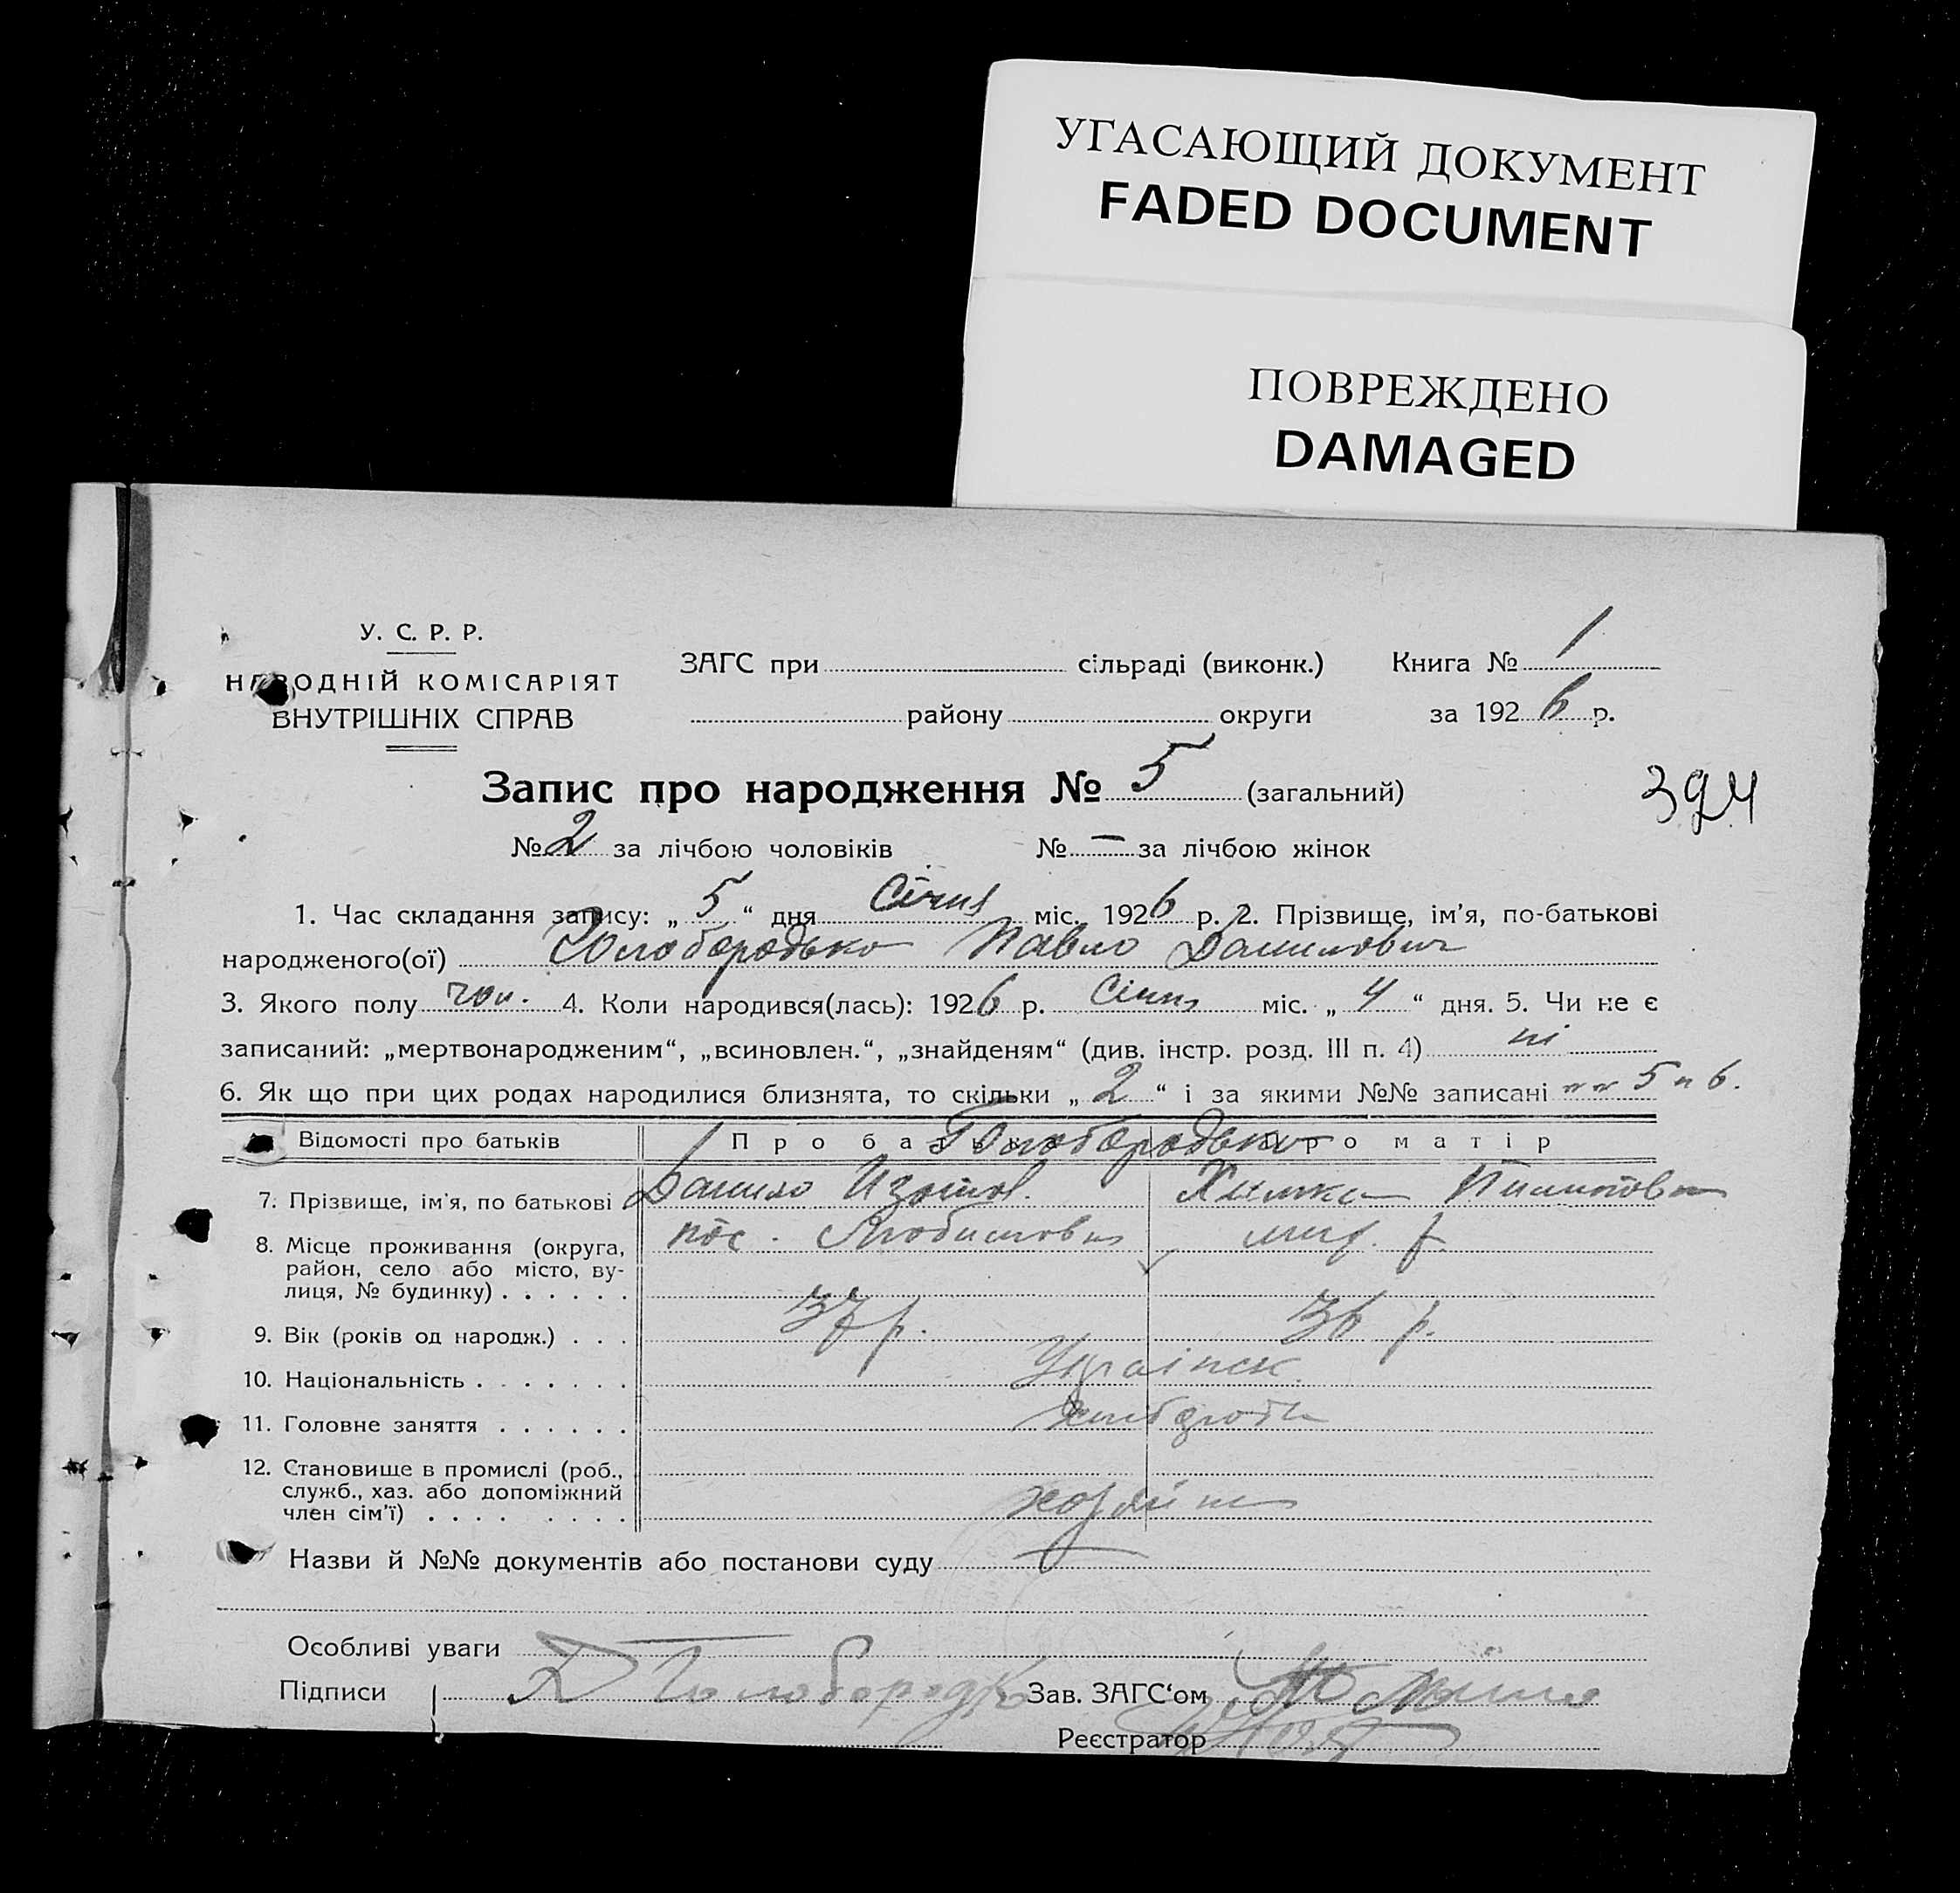 УГАСАЮЩИЙ ДОКУМЕНТ
FADED DOCUMENT
ПОВРЕЖДЕНО
DAMAGED
У. С. Р. Р.
НАРОДНІЙ КОМІСАРІЯТ
ВНУТРІШНІХ СПРАВ
ЗАГС при сільраді (виконк.) Книга № 1
району округи за 1926 р.
Запис про народження № 5 (загальний)
394
№ 2 за лічбою чоловіків № — за лічбою жінок
1. Час складання запису: „ 5 “ дня Січня міс. 1926 р. 2. Прізвище, ім'я, по-батькові
народженого(ої) Голобородько Павло Данилович
3. Якого полу чол. 4. Коли народився(лась): 1926 р. Січня міс. „ 4 “ дня. 5. Чи не є
записаний: „мертвонародженим“, „всиновлен.“, „знайденям“ (див. інстр. розд. III п. 4) ні
6. Як що при цих родах народилися близнята, то скільки „ 2 “ і за якими №№ записані 5 и 6.
Відомості про батьків Про батька Про матір
Голобородько
7. Прізвище, ім'я, по батькові Данило Изотов. Химка Пилиповна
8. Місце проживання (округа,
район, село або місто, ву-
лиця, № будинку) . . . . . .
пос.
9. Вік (років од народж.) . . . 37 р. 36 р.
10. Національність . . . . . . . Українск.
11. Головне заняття . . . . . . хлібороби
12. Становище в промислі (роб.,
служб., хаз. або допоміжний
член сім'ї) . . . . . . . .
хозяїн
Назви й №№ документів або постанови суду —
Особливі уваги
Підписи Д Голобородько Зав. ЗАГС‘ом
Реєстратор